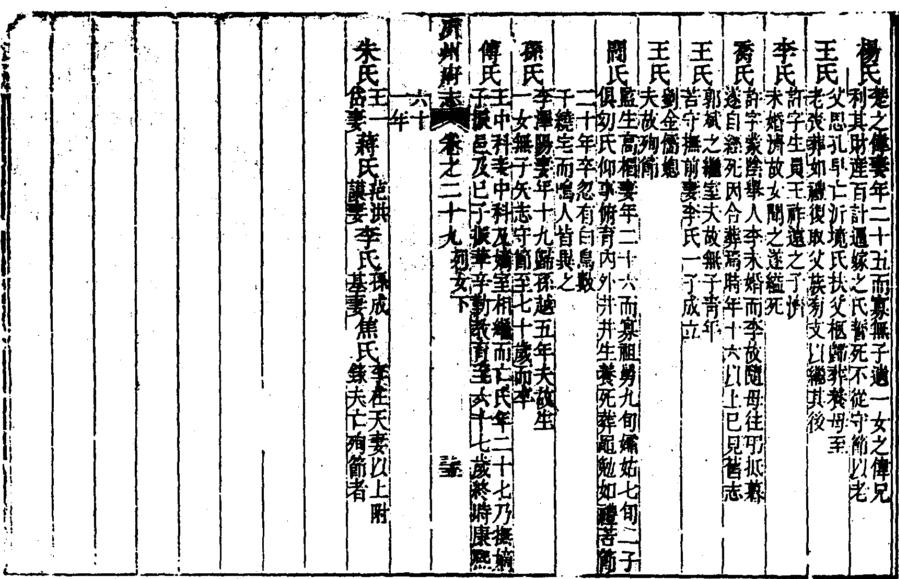 楊氏 楚之偉妻年二十五而寡無子遺一女之偉兄
利其財產百計逼嫁之氏誓死不從守節以老
王氏 父思孔早亡沂境氏扶父柩歸葬養母至
老喪葬如禮復取父族有文以繼其後
李氏 許字生員王祚遠之子濟
未婚濟故女聞之遂縊死
喬氏 許字蒙陰舉人李未婚而李故隨母往弔抵暮
遂自經死因合葬焉時年十六以上已見舊志
王氏 郭斌之繼室夫故無子青年
苦守撫前妻李氏一子成立
王氏 劉金儒媳
夫故殉節
關氏 監生高楷妻年二十六而寡祖舅九旬孀姑七旬二子
俱幼氏仰事俯育內外井井生養死葬黽勉如禮苦節
二十年卒忽有白鳥數
千繞宅而鳴人皆異之
孫氏 李澤陽妻年十九歸孫越五年夫故生
一女無子矢志守節至七十歲而卒
傅氏 王中科妻中科及嫡室相繼而亡氏年二十七乃撫嫡
子振邑及己子振華辛勤教育至六十七歲終時康熙
沂州府志 卷之二十九 列女下
六十
一年
朱氏 王一岱妻 蔣氏 范洪謨妻 李氏 孫成基妻 焦氏 李在天妻以上附
錄夫亡殉節者